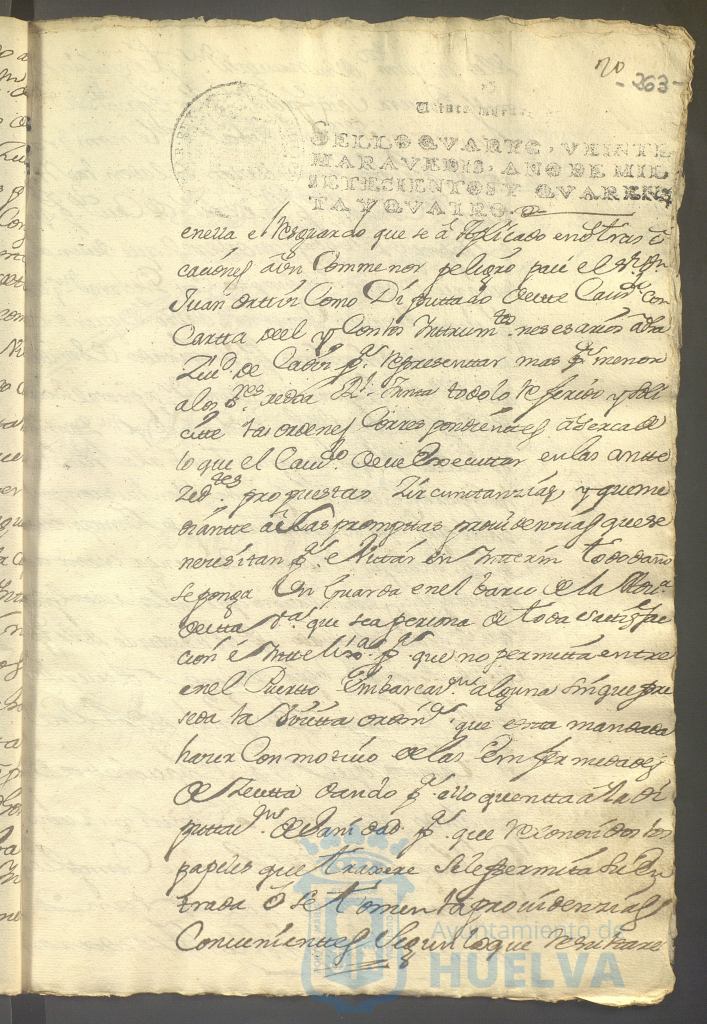 20
-263-
Veinte marav
SELLO QVARTO, VEINTE
MARAVEDIS, AÑO DE MIL
SETECIENTOS Y QVAREN
TA Y QVATRO.
enella el resguardo que se á Replicado en otras o
caciones aun Con menor peligro pace el
Juan Como Diputtado deeste Cavdo con
Cartta deel y Con los Yntrumtos nesesarios
Ziud de Cadiz pa Representtar mas pr menor
a los Sres todo lo Referido y soli
citte las ordenes Correspondienttes aserca de
lo que el Cavdo deve Executtar en las antte
Zedtes propuesttas Zircunstanzias y que me
diantte a las prompttas providenzias que se
neresitan pa evittar en Ynterin todo daño
se ponga Un Guarda en el barco de la
destta Va que sea persona de toda sattisfac
cion é Ynttelixa pa que no permitta entre
en el Puertto Embarcazn alguna sin que pre
seda la Visitta ordina que estta mandada
hazer Con motivo de las Emfermedades
de Zeutta dando pa ello quentta a la Di
puttazn de Sanidad pa que Reconosidos los
papeles que traxere se le permitta su En
trada ó se tomen las providenzias
Convenienttes Segun lo que Resulttare
Ayuntamiento de
HUELVA